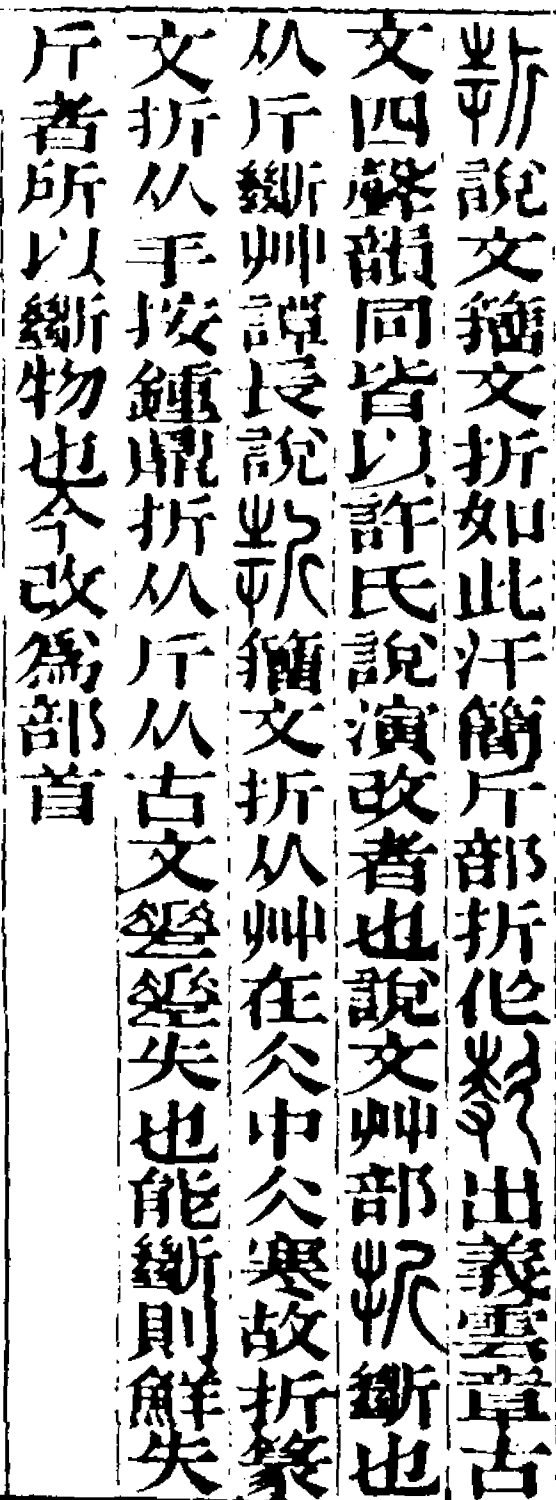 說文籀文折如此汗簡斤部折作出義雲章古
文四聲韻同皆以許氏說演改者也說文艸部斷也
从斤斷艸譚長說籀文折从艸在仌中仌寒故折篆
文折从手按鍾鼎折从斤从古文失也能斷則鮮失
斤者所以斷物也今改爲部首